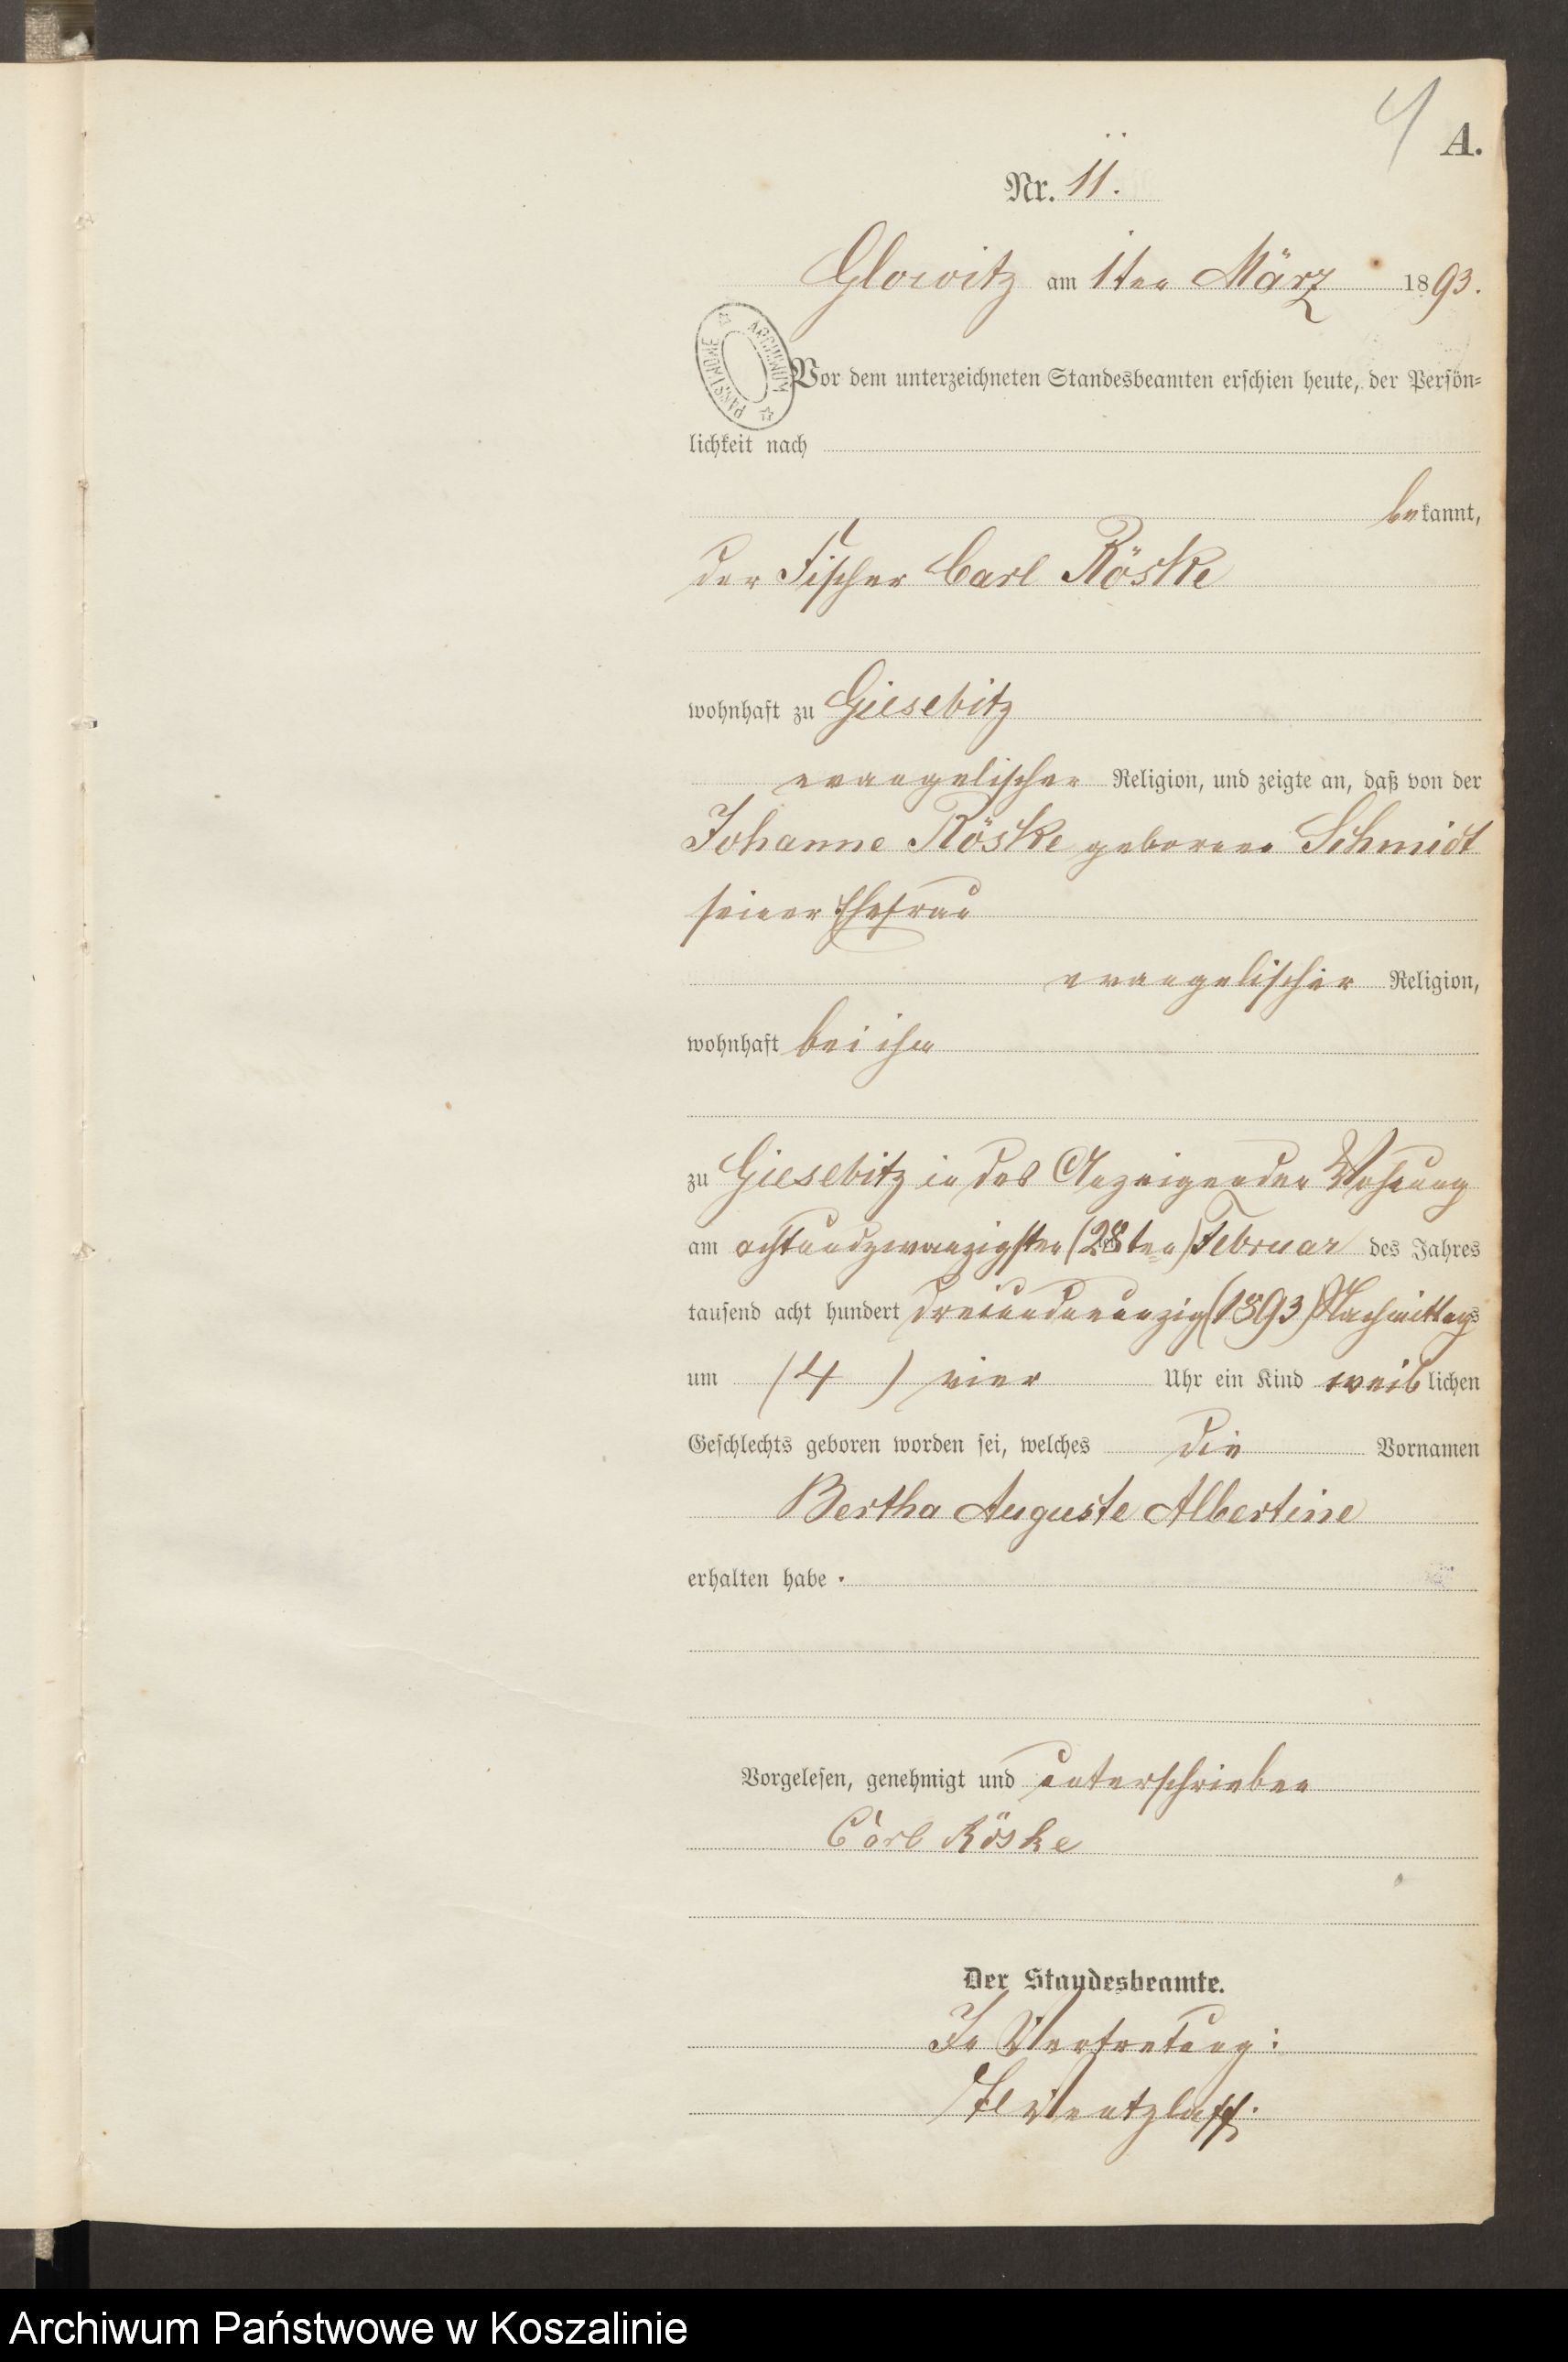 4
A.
Nr. 11.
Glowitz am 1ten März 1893.
ARCHIWUM PAŃSTWOWE
Vor dem unterzeichneten Standesbeamten erschien heute, der Persön-
lichkeit nach
bekannt,
der Fischer Carl Röske
wohnhaft zu Giesebitz
evangelischer Religion, und zeigte an, daß von der
Johanne Röske geborene Schmidt
seiner Ehefrau
evangelischer Religion,
wohnhaft bei ihm
zu Giesebitz in des Anzeigenden Wohnung
am achtundzwanzigsten (28ten) Februar des Jahres
tausend acht hundert dreiundneunzig (1893) Nachmittags
um (4) vier Uhr ein Kind weiblichen
Geschlechts geboren worden sei, welches die Vornamen
Bertha Auguste Albertine
erhalten habe.
Vorgelesen, genehmigt und unterschrieben
Carl Röske
Der Standesbeamte.
In Vertretung:
Wentzlaff.
Archiwum Państwowe w Koszalinie